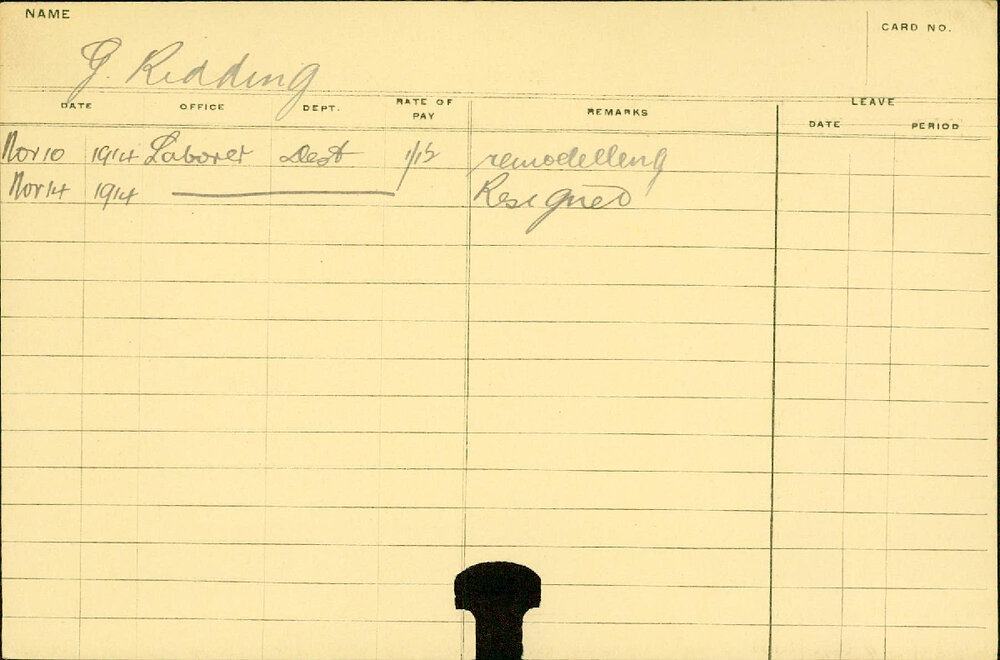 NAME
CARD NO.
G. Redding
DATE OFFICE DEPT. RATE OF PAY REMARKS LEAVE
DATE PERIOD
Nov 10 1914 Laborer Dest 1/15 remodelleng
Nov 14 1914 Resigned